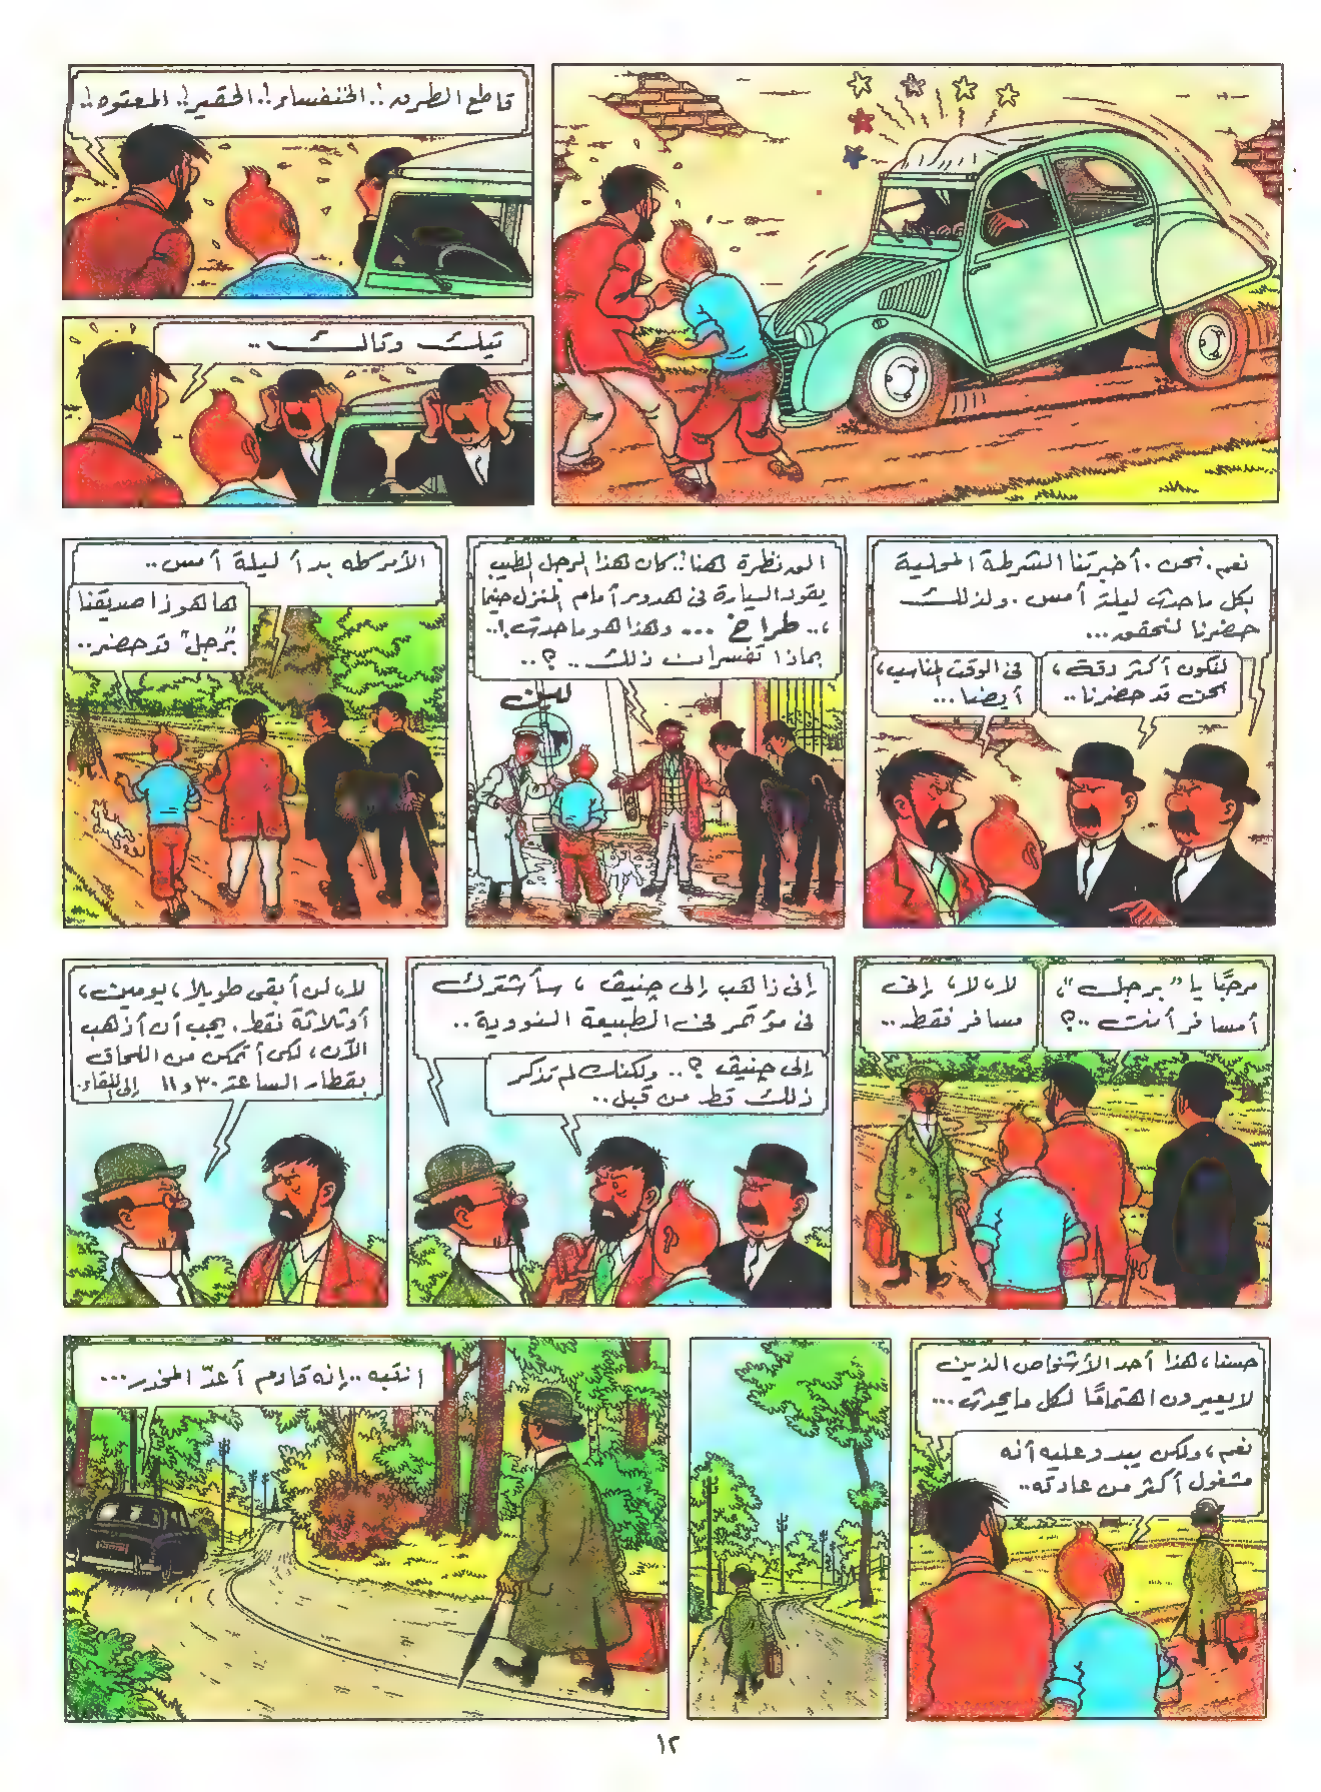 قاطع الطرق!.. الخنفساء!.. الحقير!.. المعتوه!..
تيك وتاك..
نعم. نحن. أخبرتنا الشرطة المحلية
بكل ماحدث ليلة أمس. ولذلك
حضرنا لنحقق...
لنكون أكثر دقة،
نحن قد حضرنا..
فى الوقت المناسب،
أيضا...
الق نظرة هنا!. كان هذا الرجل الطيب
يقود السيارة فى هدوء أمام المنزل حينما
،.. طراخ ... وهذا هو ماحدث!..
بماذا تفسران ذلك.. ؟..
لبن
الأمر كله بدأ ليلة أمس..
ها هو ذا صديقنا
"برجل" قد حضر..
مرحبًا يا "برجل"،
أمسافر أنت ..؟
لا، لا، إنى
مسافر فقط..
إنى ذاهب إلى چنيف، سأشترك
فى مؤتمر فى الطبيعة النووية..
إلى چنيف ؟.. ولكنك لم تذكر
ذلك قط من قبل..
لا، لن أبقى طويلا، يومين،
أو ثلاثة فقط. يجب أن أذهب
الآن، لكى أتمكن من اللحاق
بقطار الساعة ٣٠ و ١١ إلى اللقاء.
حسنا، هذا أحد الأشخاص الذين
لا يعيرون اهتمامًا لكل مايحدث...
نعم، ولكن يبدو عليه أنه
مشغول أكثر من عادته..
انتبه.. إنه قادم أعدّ المخدر...
١٢